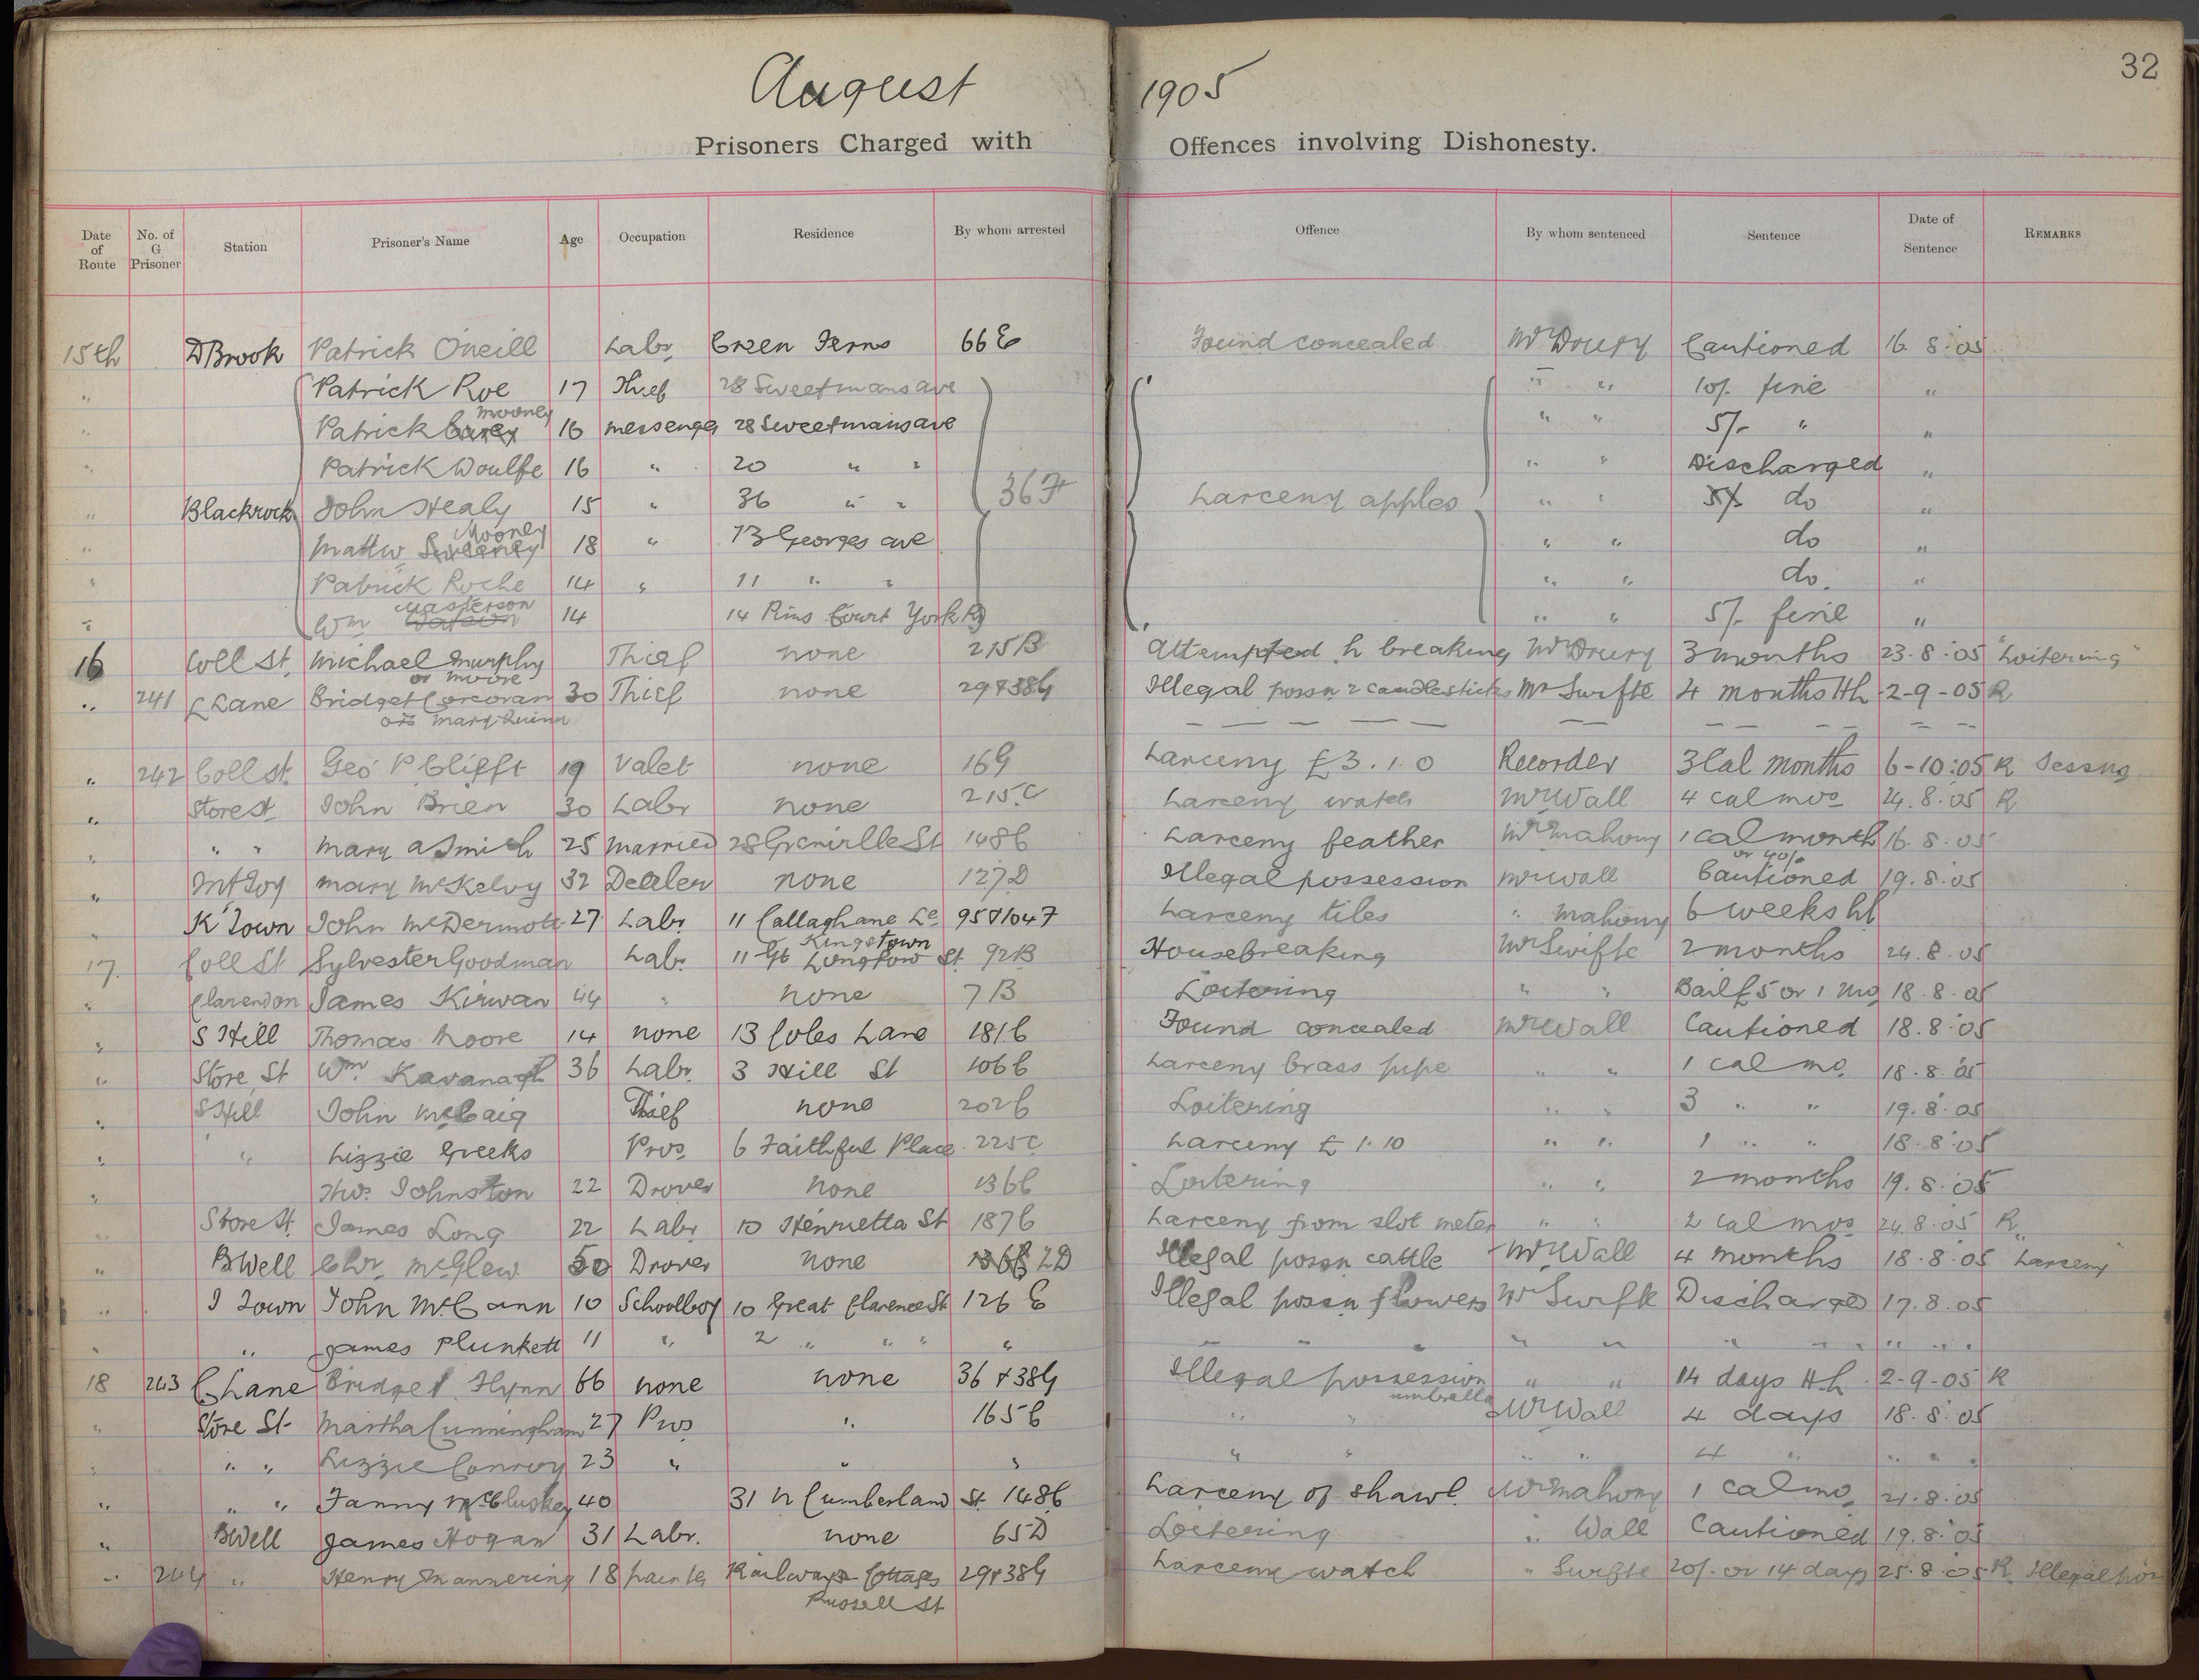 32
August 1905
Prisoners Charged with Offences involving Dishonesty.
Date of Route No. of G Prisoner Station Prisoner's Name Age Occupation Residence By whom arrested Offence By whom sentenced Sentence Date of Sentence REMARKS
15th DBrook Patrick Oneill Labr Green Ferns 66 E Found concealed Mr Drury Cautioned 16.8.05
" Patrick Roe 17 Thief 28 Sweetmans ave " " 10/- fine "
Mooney
" Patrick Carey 16 messenger 28 Sweetmans ave " " 5/- " "
" Patrick Woulfe 16 " 20 " " " " Discharged "
" Blackrock John Healy 15 " 36 " " 36 F Larceny apples " " 5/- do "
Mooney
" Mattw Sweeney 18 " 13 Georges ave " " do "
" Patrick Roche 14 " 11 " " " " do "
Masterson
" Wm Watson 14 14 Pims Court York Rd " " 5/- fine "
16 Coll St. Michael Murphy Thief none 215B Attempted h breaking Mr Drury 3 months 23.8.05 "Loitering"
or Moore
" 241 C Lane Bridget Corcoran 30 Thief none 29+38G Illegal possn 2 candlesticks Mr Swifte 4 months Hh 2-9-05 R
ors Mary Quinn
" 242 Coll St. Geo P Clifft 19 Valet none 16G Larceny £3.1.0 Recorder 3 Cal months 6-10.05 R
" Store St John Brien 30 Labr none 215C Larceny watch Mr Wall 4 cal mos 24.8.05 R
" " " Mary A Smith 25 Married 28 Grenville St 148C Larceny feather Mr Mahony 1 cal month 16.8.05
or 40/-
" MtJoy Mary McKelvy 32 Dealer none 127D Illegal possession Mr Wall Cautioned 19.8.05
" K Town John McDermott 27 Labr 11 Callaghane Le 95+104F Larceny tiles " Mahony 6 weeks hl
Kingstown
17. Coll St Sylvester Goodman Labr 11 Gt Longford St 92B Housebreaking Mr Swifte 2 months 24.8.05
" Clarendon James Kirwan 44 " none 7B Loitering " " Bail £5 or 1 mo 18.8.05
" S Hill Thomas Moore 14 none 13 Coles Lane 181C Found concealed Mr Wall Cautioned 18.8.05
" Store St Wm Kavanagh 36 Labr. 3 Hill St 106C Larceny brass pipe " " 1 cal mo. 18.8.05
" S Hill John McCaig Thief none 202C Loitering " " 3 " " 19.8.05
" " Lizzie Greeks Pros 6 Faithful Place 225C Larceny £1.10 " " 1 " " 18.8.05
" Thos Johnston 22 Drover none 136C Loitering " " 2 months 19.8.05
" Store St. James Long 22 Labr 10 Henrietta St 187C Larceny from slot meter " " 2 cal mos 24.8.05 R
" BWell Chr. McGlew 50 Drover none 2D Illegal possn cattle Mr Wall 4 months 18.8.05 Larceny
" I Town John McCann 10 Schoolboy 10 Great Clarence St 126 E Illegal possn flowers Mr Swifte Discharged 17.8.05
" " James Plunkett 11 " 2 " " " " " " " " " " " " " "
18 243 C Lane Bridget Flynn 66 none none 36+38G Illegal possession " " 14 days H.h. 2-9-05 R
umbrella
" Store St Martha Cunningham 27 Pros " 165C " " Mr Wall 4 days 18.8.05
" " " Lizzie Conroy 23 " " " " " " " 4 " " " "
" " " Fanny McCluskey 40 31 N Cumberland St. 148C Larceny of shawl. Mr Mahony 1 cal mo. 21.8.05
" BWell James Hogan 31 Labr. none 65D Loitering " Wall Cautioned 19.8.05
" 244 " Henry Mannering 18 painter Railway Cottages 29+38G Larceny watch " Swifte 20/- or 14 days 25.8.05 R Illegal
Russell St